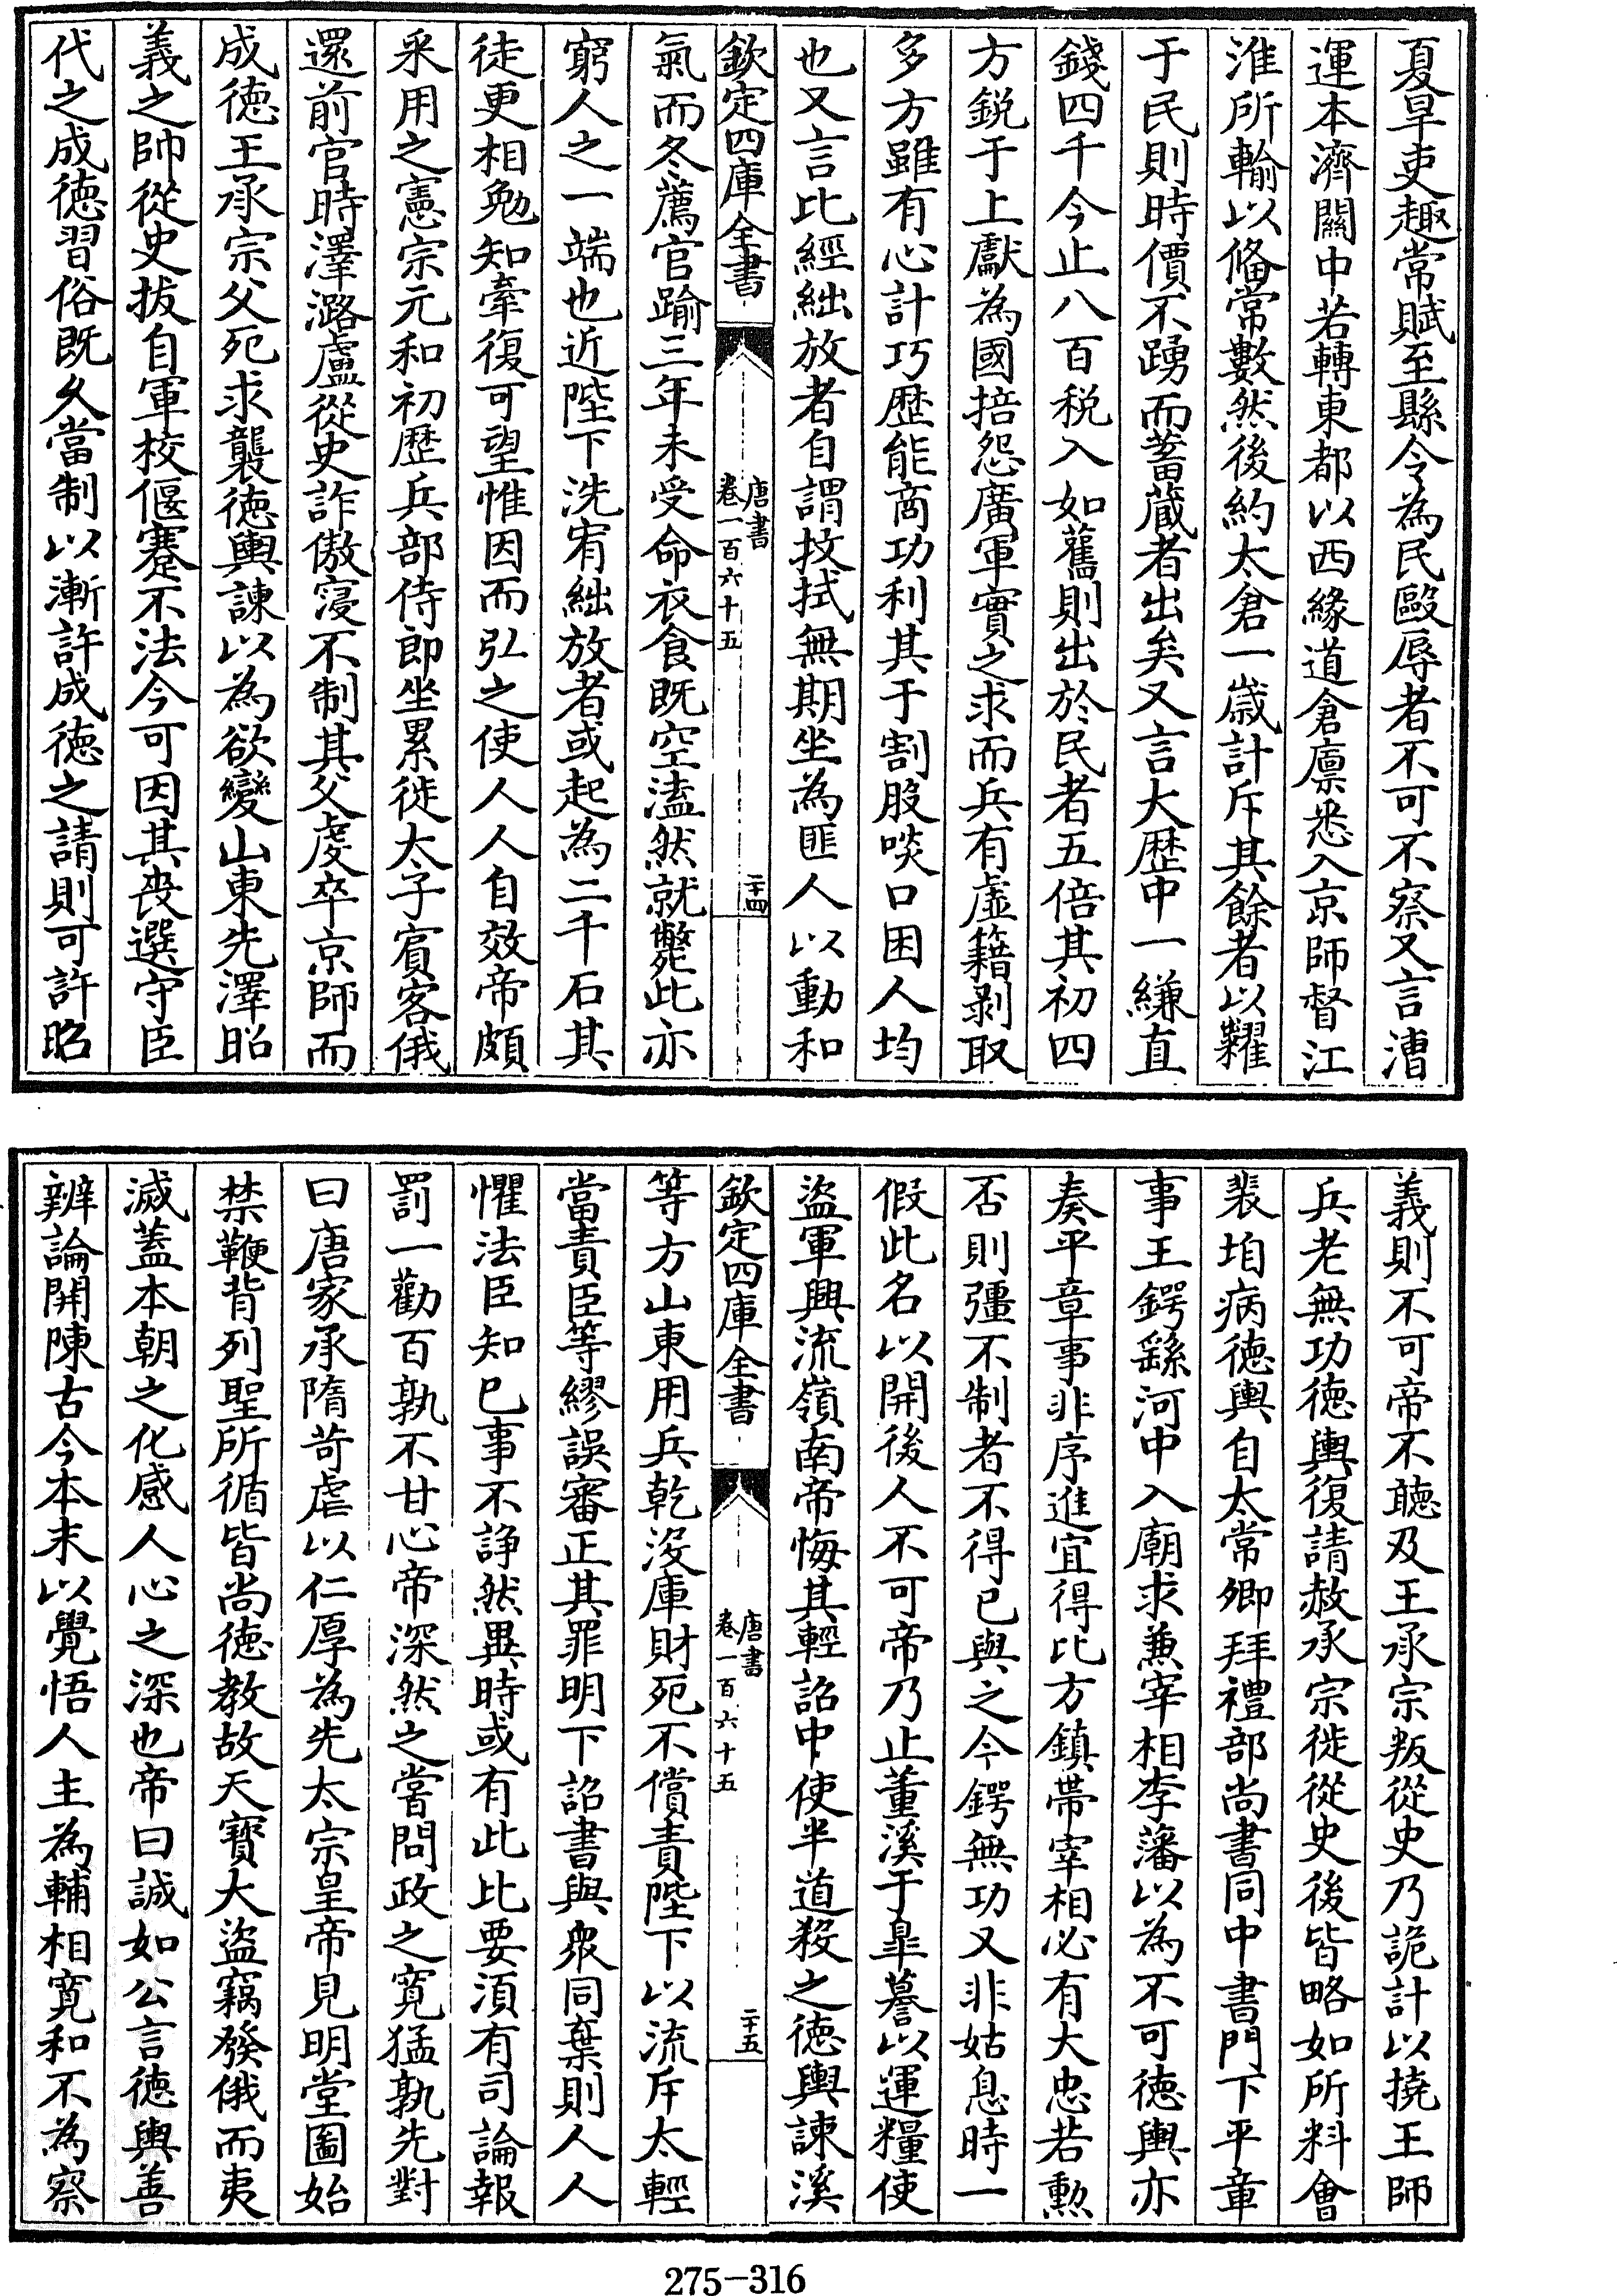 夏旱吏趣常賦至縣令為民毆辱者不可不察又言漕
運本濟關中若轉東都以西緣道倉廩悉入京師督江
淮所輸以備常數然後約太倉一歲計斥其餘者以糶
于民則時價不踴而蓄藏者出矣又言大歴中一縑直
錢四千今止八百税入如舊則出於民者五倍其初四
方鋭于上獻為國掊怨廣軍實之求而兵有虛籍剥取
多方雖有心計巧歴能商功利其于割股啖口困人均
也又言比經絀放者自謂抆拭無期坐為匪人以動和
欽定四庫全書
唐書
卷一百六十五
二十四
氣而冬薦官踰三年未受命衣食既空溘然就斃此亦
窮人之一端也近陛下洗宥絀放者或起為二千石其
徒更相勉知牽復可望惟因而弘之使人人自效帝頗
采用之憲宗元和初歴兵部侍郎坐累徙太子賓客俄
還前官時澤潞盧從史詐傲寖不制其父虔卒京師而
成德王承宗父死求襲德輿諫以為欲變山東先澤昭
義之帥從史拔自軍校偃蹇不法今可因其喪選守臣
代之成德習俗既久當制以漸許成德之請則可許昭
義則不可帝不聽及王承宗叛從史乃詭計以撓王師
兵老無功德輿復請赦承宗徙從史後皆略如所料會
裴垍病德輿自太常卿拜禮部尚書同中書門下平章
事王鍔繇河中入廟求兼宰相李藩以為不可德輿亦
奏平章事非序進宜得比方鎮帶宰相必有大忠若勲
否則彊不制者不得已與之今鍔無功又非姑息時一
假此名以開後人不可帝乃止董溪于皋謩以運糧使
盜軍興流嶺南帝悔其輕詔中使半道殺之德輿諫溪
欽定四庫全書
唐書
卷一百六十五
二十五
等方山東用兵乾沒庫財死不償責陛下以流斥太輕
當責臣等繆誤審正其罪明下詔書與衆同棄則人人
懼法臣知已事不諍然異時或有此比要須有司論報
罰一勸百孰不甘心帝深然之嘗問政之寛猛孰先對
曰唐家承隋苛虐以仁厚為先太宗皇帝見明堂圖始
禁鞭背列聖所循皆尚德教故天寶大盜竊發俄而夷
滅蓋本朝之化感人心之深也帝曰誠如公言德輿善
辨論開陳古今本末以覺悟人主為輔相寛和不為察
275-316